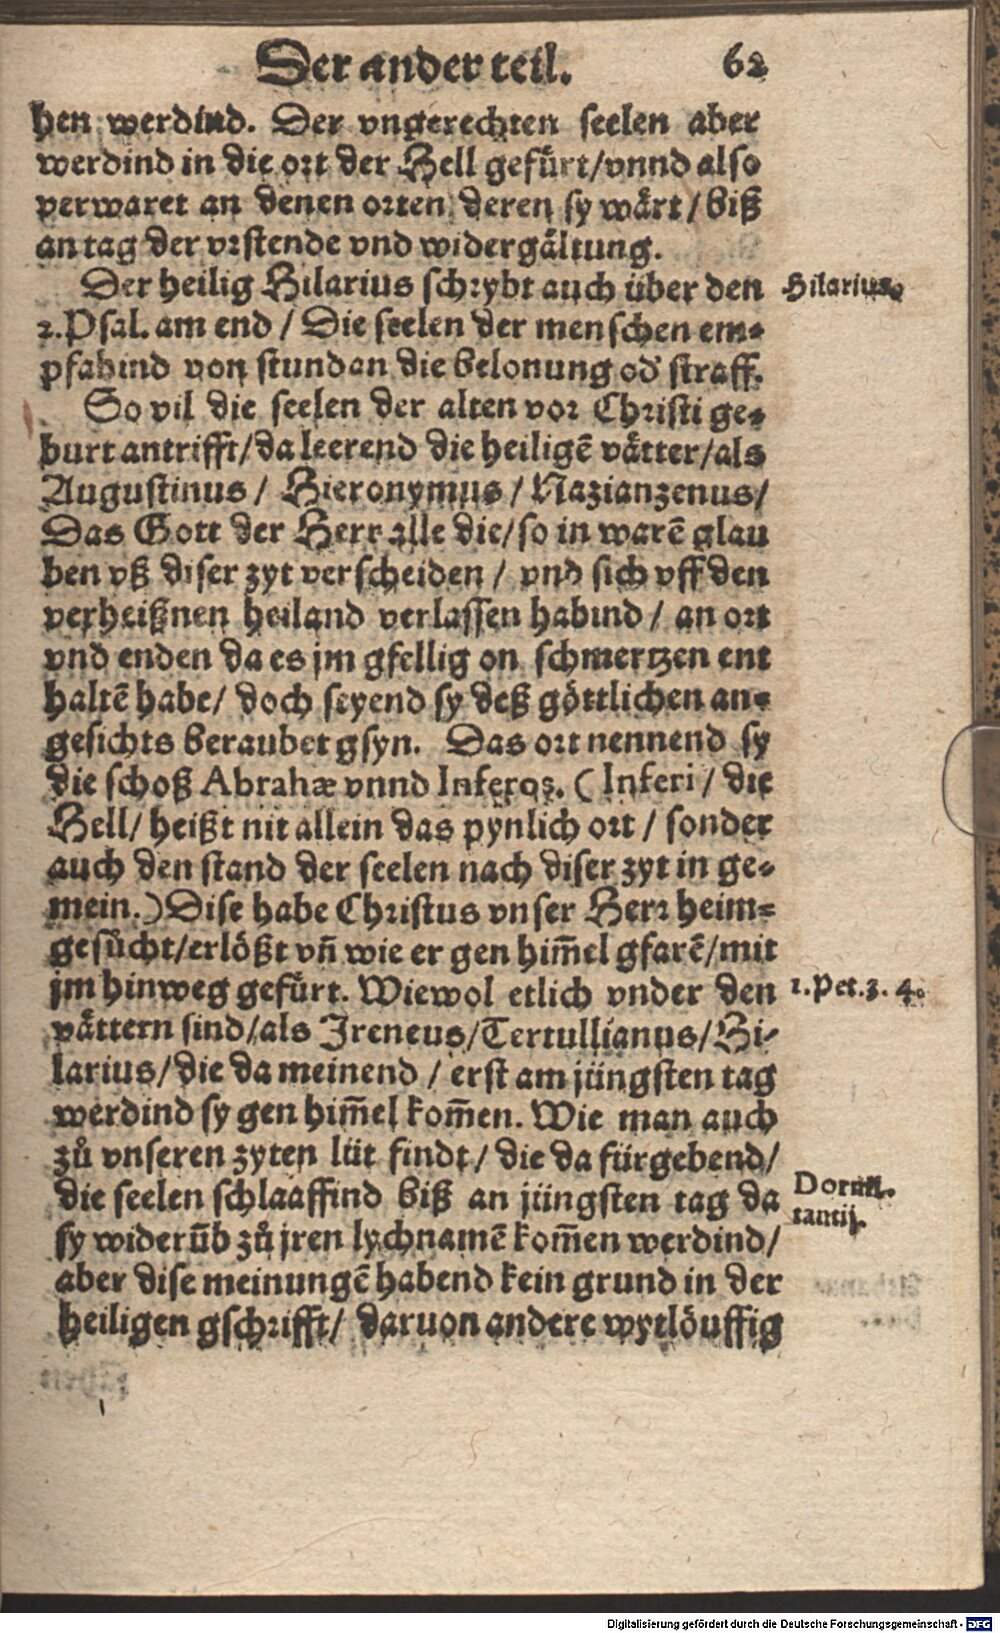 Der ander teil. 62
hen werdind. Der vngerechten seelen aber
werdind in die ort der Hell gefürt/vnnd also
verwaret an denen orten deren sy wärt/biß
an tag der vrstende vnd widergältung.
Der heilig Hilarius schrybt auch über den
Hilarius.
2.Psal. am end/ Die seelen der menschen em-
pfahind von stundan die belonung od' straff.
So vil die seelen der alten vor Christi ge-
burt antrifft/da leerend die heiligē vätter/als
Augustinus/ Hieronymus/ Nazianzenus/
Das Gott der Herr alle die/so in warē glau
ben vß diser zyt verscheiden/ vnd sich vff den
verheißnen heiland verlassen habind/ an ort
vnd enden da es jm gfellig on schmertzen ent
haltē habe/ doch seyend sy deß göttlichen an-
gesichts beraubet gsyn. Das ort nennend sy
die schoß Abrahæ vnnd Inferos. (Inferi/ die
Hell/ heißt nit allein das pynlich ort/ sonder
auch den stand der seelen nach diser zyt in ge-
mein.) Dise habe Christus vnser Herr heim-
gesůcht/erlößt vn̄ wie er gen him̄el gfarē/mit
jm hinweg gefürt. Wiewol etlich vnder den
1.Pet.3. 4.
vättern sind/als Ireneus/Tertullianus/Hi-
larius/die da meinend/ erst am jüngsten tag
werdind sy gen him̄el kom̄en. Wie man auch
zů vnseren zyten lüt findt/ die da fürgebend/
die seelen schlaaffind biß an jüngsten tag da
Dormi-
tantij.
sy widerūb zů jren lychnamē kom̄en werdind/
aber dise meinungē habend kein grund in der
heiligen gschrifft/ daruon andere wytlöuffig
Digitalisierung gefördert durch die Deutsche Forschungsgemeinschaft - DFG